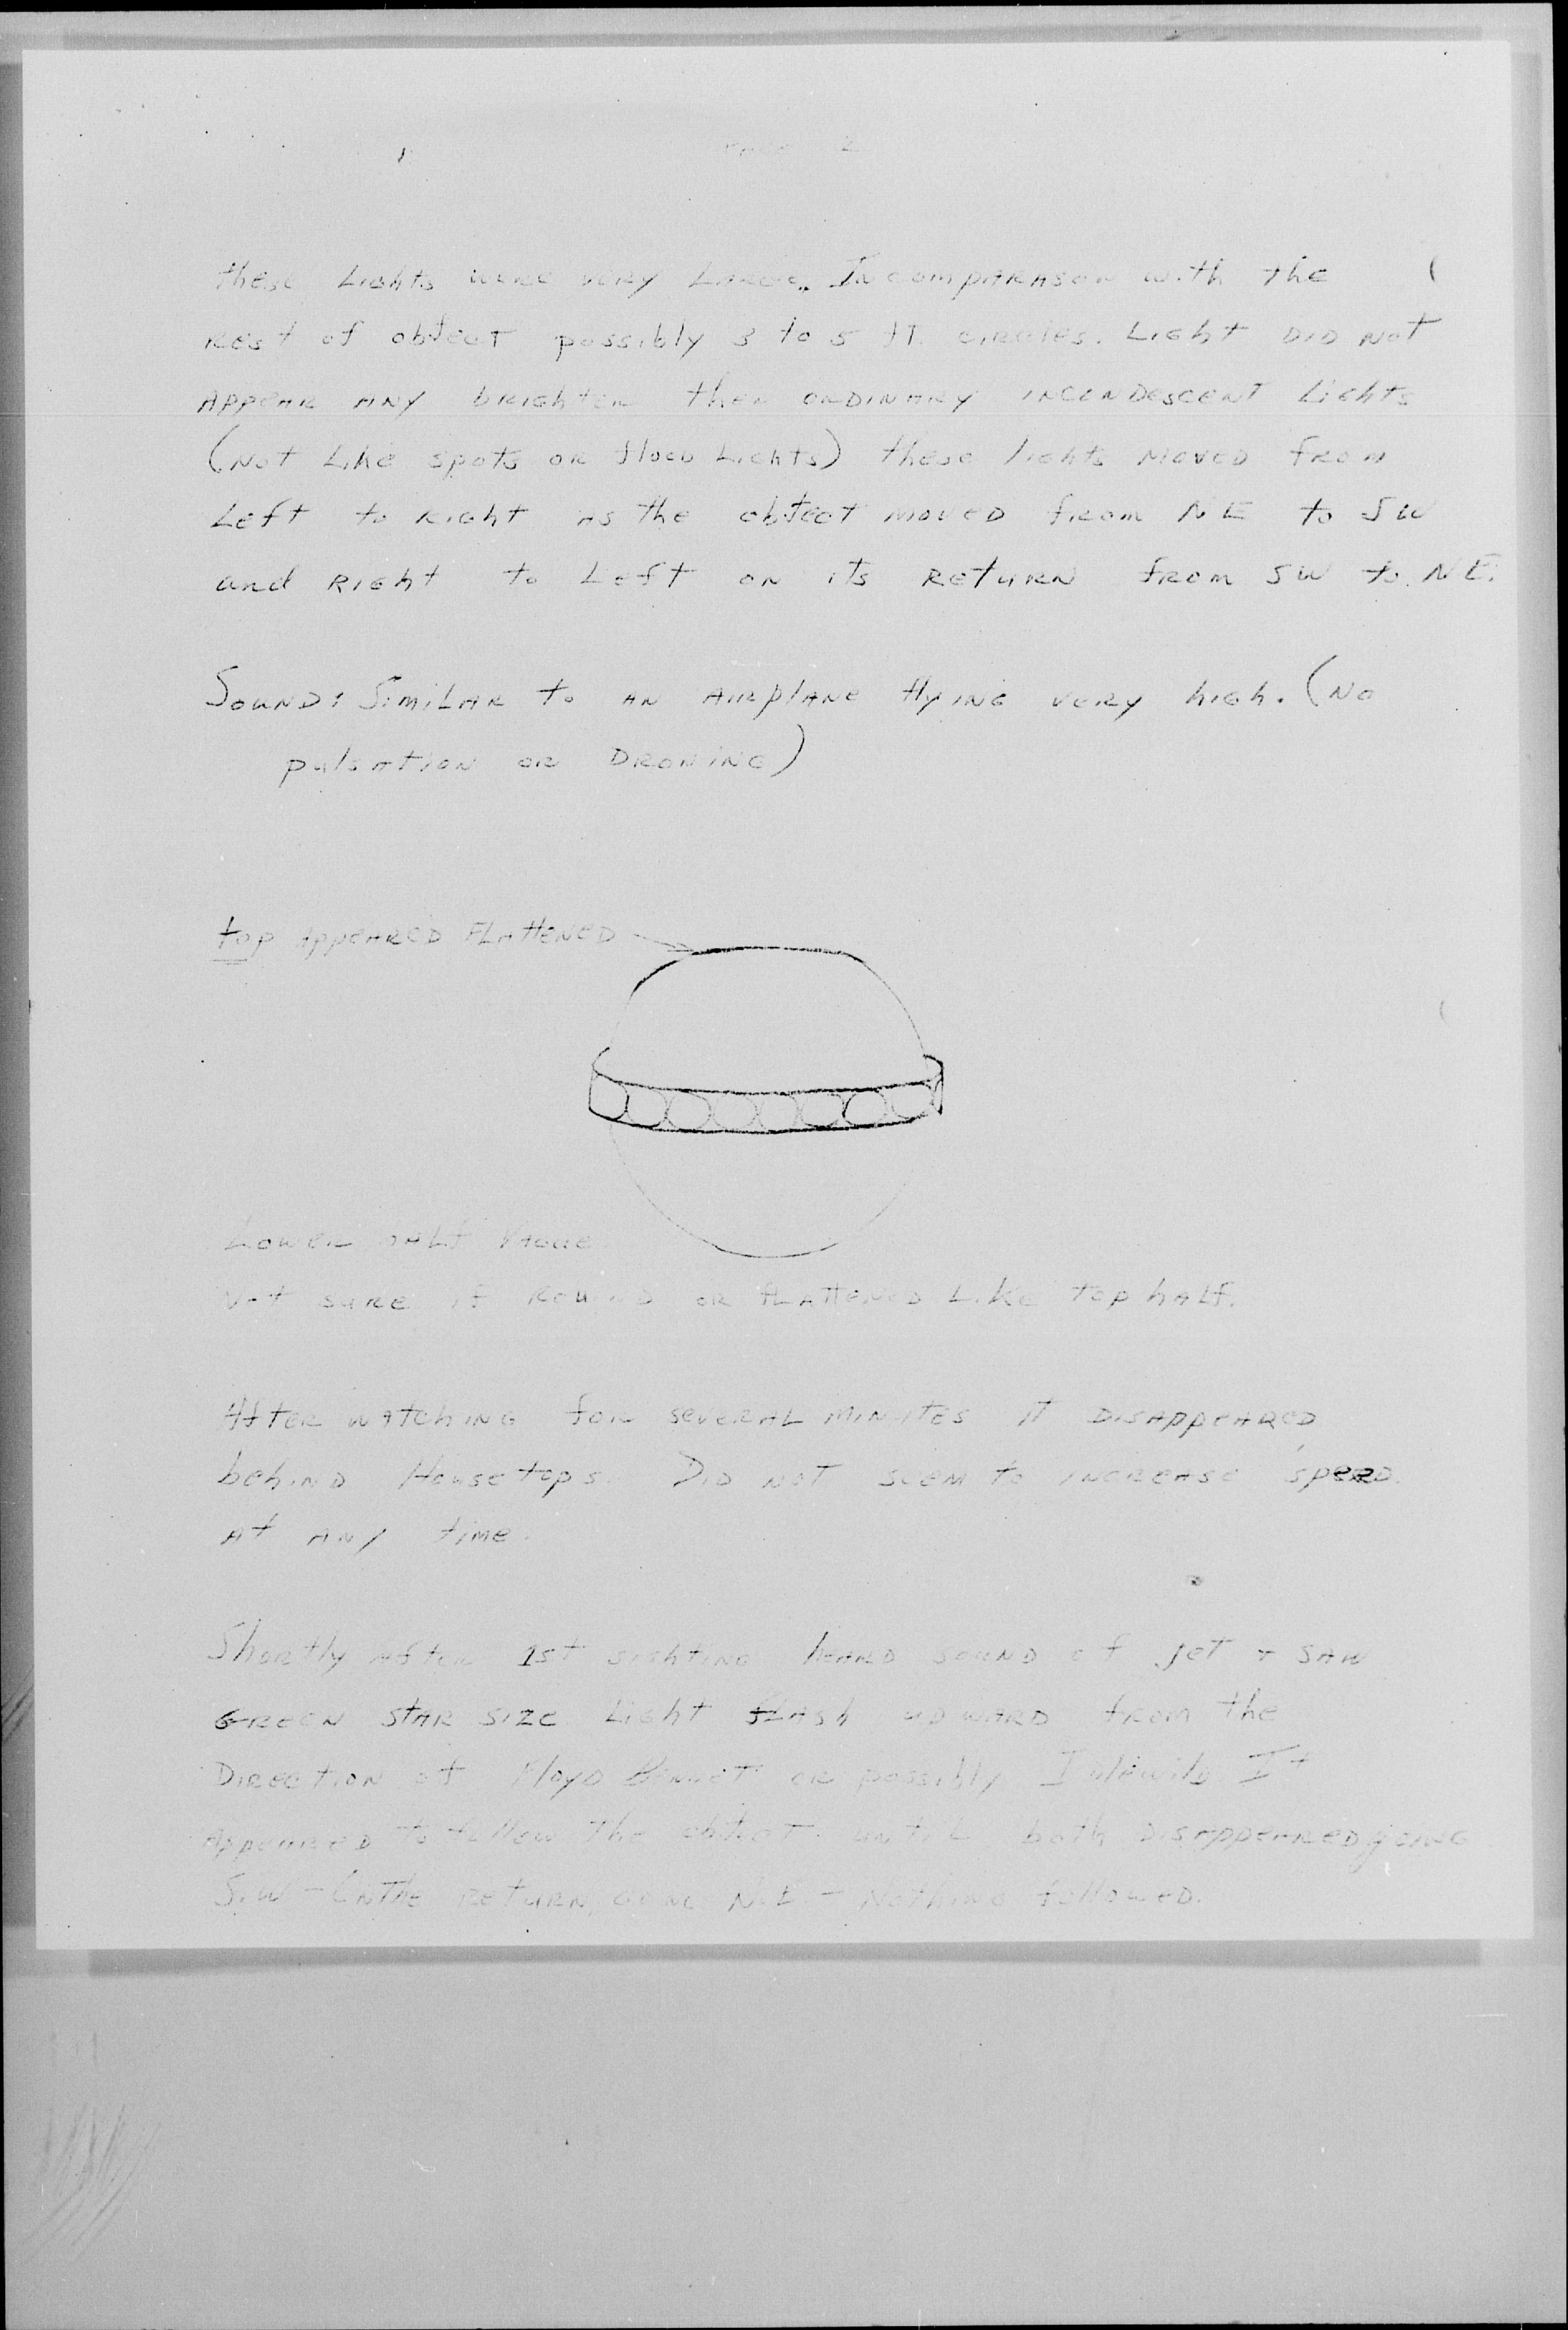 PAGE 2
these Lights were very Large. In comparason with the
Rest of object possibly 3 to 5 ft. circles. Light DID Not
Appear any brighter then ordinary incendescent Lights
(Not Like spots or flood Lights) these lights moved from
Left to Right as the object moved from NE to SW
and Right to Left on its Return from SW to NE.
Sound: Similar to an airplane flying very high. (No
pulsation or Droning)
top appeared Flattened
Lower half Vague
Not sure if Round or flattened Like top half.
After watching for several minutes it disappeared
behind Housetops. Did not seem to increase speed
at any time.
Shortly after 1st sighting heard sound of jet + saw
Green star size Light flash upward from the
Direction of Floyd Bennet or possibly Idlewild. It
Appeared to follow the object until both disappeared going
S.W - On the return, going N.E - Nothing followed.